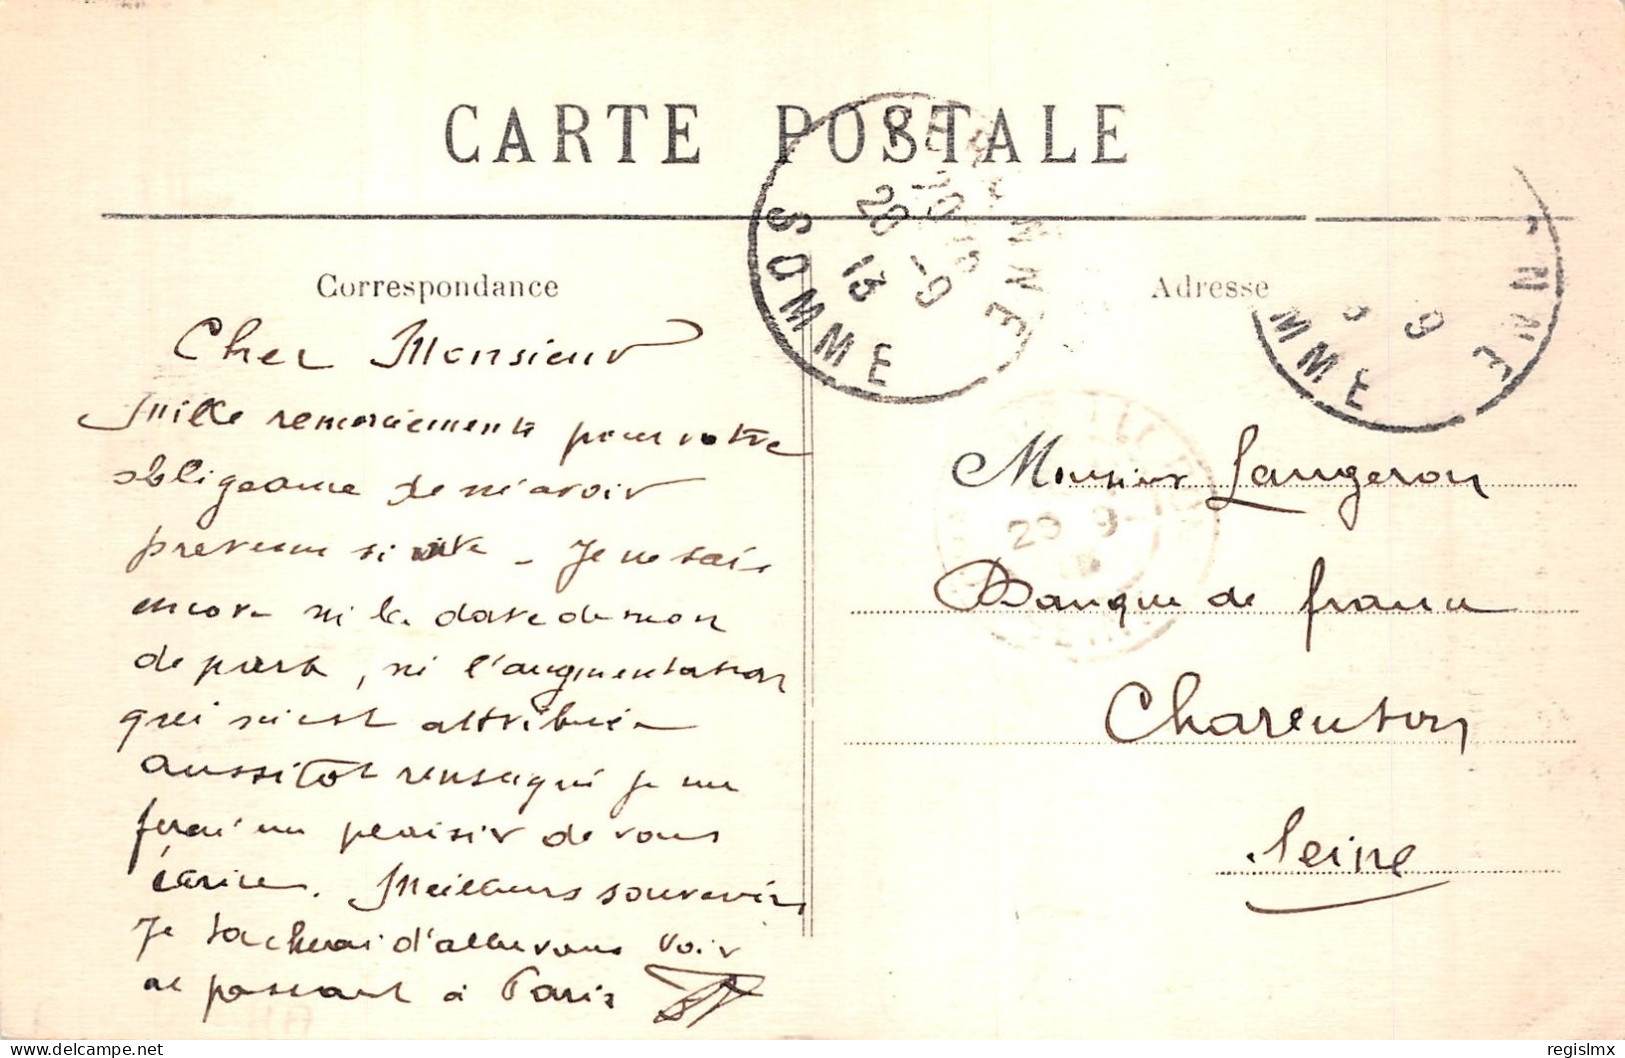 CARTE POSTALE
Correspondance
Adresse
PERONNE
20 - 9
13
SOMME
NNE
9
MME
Cher Monsieur
Mille remerciements pour votre
obligeance de m'avoir
prevenu si vite - Je ne sais
encore ni la date de mon
depart, ni l'augmentation
qui m'est attribuée
aussitot renseigné je me
ferai un plaisir de vous
écrire. Meilleurs souvenirs
Je tacherai d'aller vous voir
en passant à Paris
Monsieur Langeron
Banque de france
Charenton
Seine
regislmx